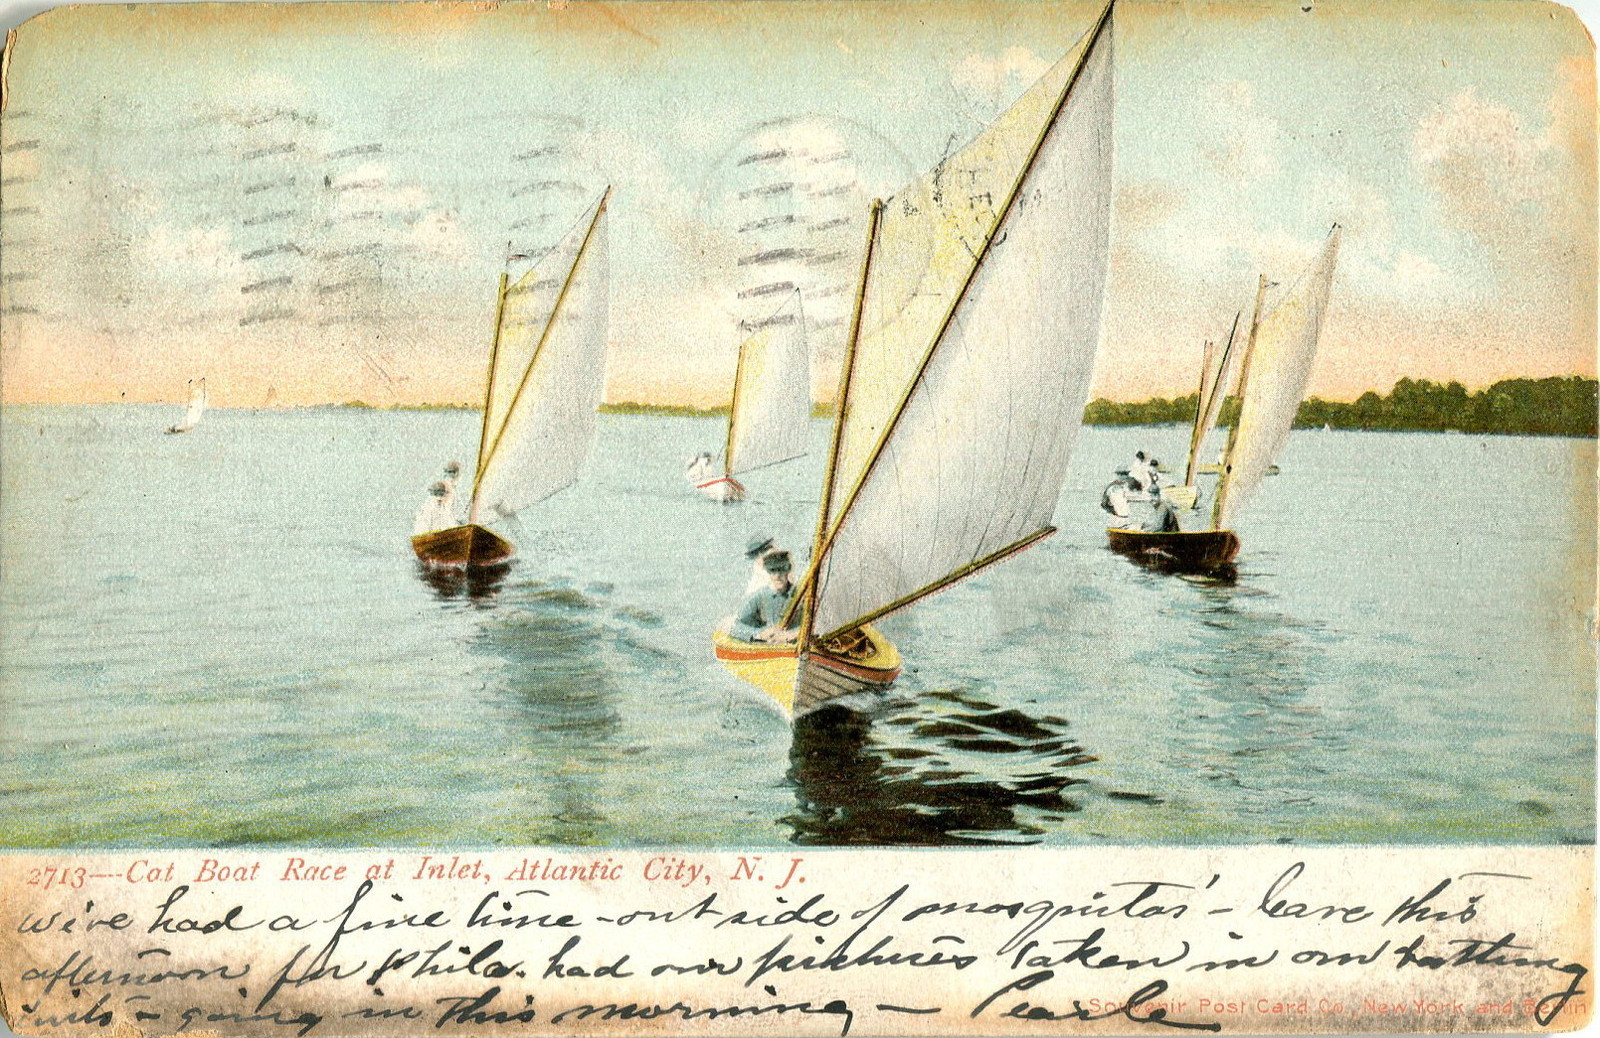 REC
2713—Cat Boat Race at Inlet, Atlantic City, N. J.
we've had a fine time - out side of mosquitos' - leave this
afternoon for Phila. had our pictures taken in our bathing
suits - going in this morning — Pearle
Souvenir Post Card Co., New York and Berlin